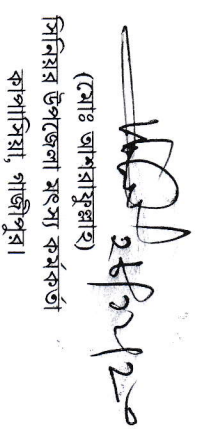 (মোঃ আশরাফুল্লাহ)
সিনিয়র উপজেলা মৎস্য কর্মকর্তা
কাপাসিয়া, গাজীপুর।